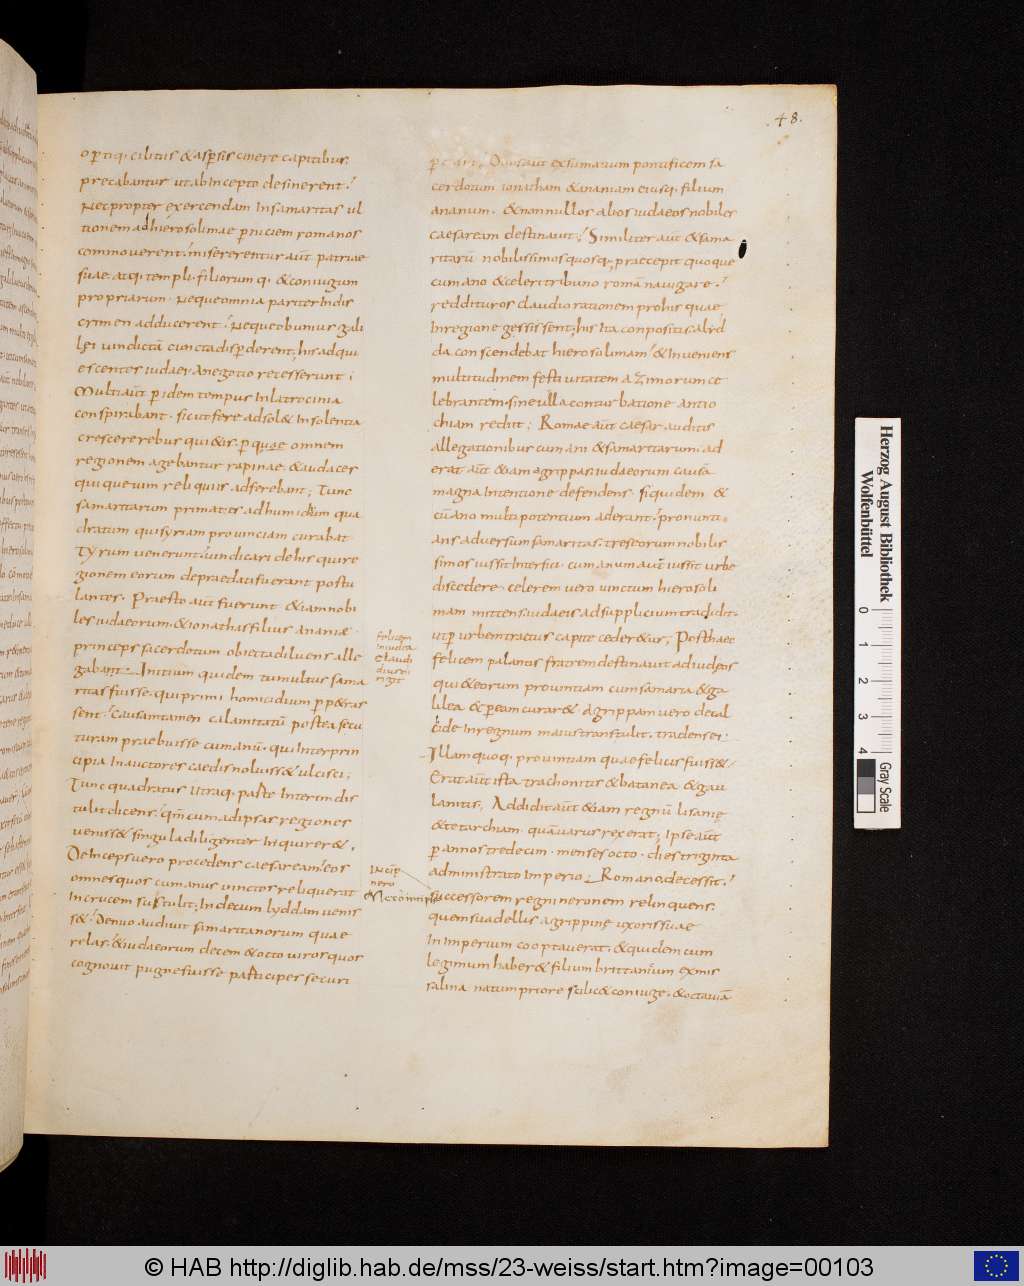 .48.
optiq; ciliciis & aspersis cinere capitibus.
precabantur ut ab incepto desinerent;
Nec propter exercendam in samaritas ul
tionem ad hierosolimae pniciem romanos
commoverent; misererentur aut patriae
suae. atq; templi. filiorum q. & coniugum
propriarum. Neque omnia pariter in dis
crimen adducerent; Neque ob unius gali
lei vindictā cuncta disperderent; his adqui
escentes iudaei a negotio recesserunt;
Multi aut p idem tempus in latrocinia
conspirabant. sicut fere adsol& insolentia
crescere rebus qui&is. p quae omnem
regionem agebantur rapinae. & audaces
quique vim reliquis adferebant; Tunc
samaritarum primates ad humidium qua
dratum qui syriam provinciam curabat
Tyrum venerunt; vindicari de his qui re
gionem eorum depraedati fuerant postu
lantes. Praesto aut fuerunt & iam nobi
les iudaeorum. & ionathas filius ananiae
princeps sacerdotum obiecta diluens alle
gabant. Initium quidem tumultus sama
ritas fuisse. qui primi homicidium pp&ras
sent; causam tamen calamitatū postea secu
turam praebuisse cumanū. qui interprin
cipia in auctores caedis noluiss& ulcisci;
Tunc quadratus utraq. parte interim dis
tulit dicens. qm̄ cum ad ipsas regiones
veniss& singula diligenter inquirer&.
Deinceps vero procedens caesaream; eos
omnes quos cumanus vinctos reliquerat
in crucem sustulit; Inde cum lyddam venis
s&. denuo audivit samaritanorum quae
relas. & iudaeorum decem & octo viros quos
cognovit pugne fuisse participes securi
felicem
in iudea
claudi
dirigit
nero
cerdotum ionatham & ananiam eiusq. filium
ananum. & nonnullos alios iudaeos nobiles
caesaream destinavit; Similiter aut & sama
ritarū nobilissimos quosq; praecepit quoque
cumano & celeri tribuno romā navigare.
reddituros claudio rationem pro his quae
in regione gessissent; his ita conpositis a lyd
da conscendebat hierosolimam; & inveniens
multitudinem festivitatem azimorum ce
lebrantem. sine ulla conturbatione antio
chiam redit; Romae aut caesar auditis
allegationibus cumani & samaritarum. ad
erat aut & iam agrippas. iudaeorum causā
magna intentione defendens. siquidem &
cūano multi potentium aderant; pronunti
ans adversum samaritas. tres eorum nobilis
simos iussit interfici. cumanum aut iussit urbe
discedere. celerem vero vinctum hierosoli
mam mittens. iudaeis ad supplicium tradidit.
ut p urbem tractus capite ceder&ur; Post haec
felicem palantis fratrem destinavit ad iudeos
qui & eorum provintiam cum samaria & ga
lilea & peam curar&. Agrippam vero de cal
cide in regnum maius transtulit. tradens ei
Illam quoq. provintiam quae felicis fuiss&.
Erat aut ista trachonitis & batanea & gau
lanitis. Addidit aut & iam regnū lisanię
& tetarchiam. quā varus rexerat; Ipse aut
p annos tredecim. menses octo. dies triginta
administrato imperio; Romano. decessit.
successorem regni neronem relinquens.
quem suadellis agrippinę uxoris suae
in imperium cooptaverat. & quidem cum
legitimum haber& filium brittanicum ex mis
salina natum priore scilic& coniuge. & octaviā
Herzog August Bibliothek
Wolfenbüttel
0 1 2 3 4
Gray Scale
© HAB http://diglib.hab.de/mss/23-weiss/start.htm?image=00103